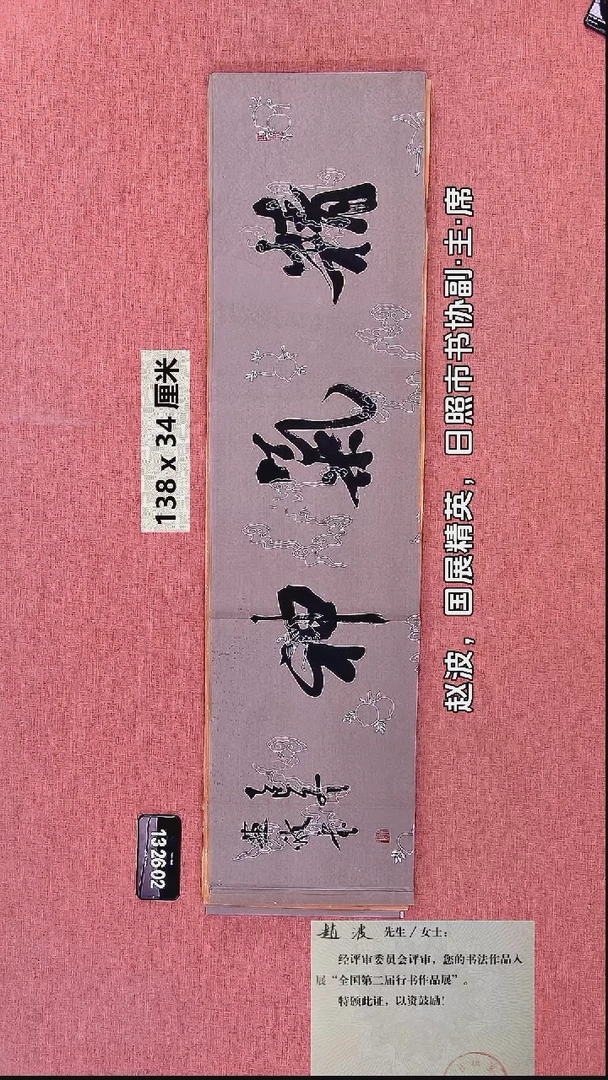 138 x 34 厘米
精氣神
趙波书
赵波，国展精英，日照市书协副·主·席
132602
趙波 先生/女士：
经评审委员会评审，您的书法作品入
展“全国第二届行书作品展”。
特颁此证，以资鼓励！